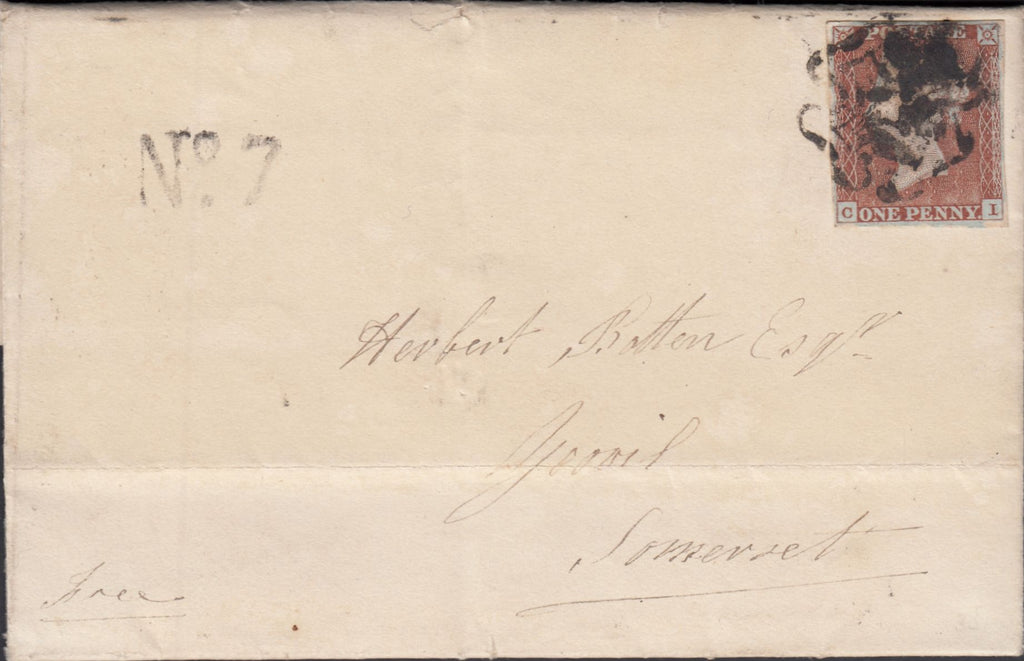 POSTAGE
C ONE PENNY I
No. 7
Herbert Batten Esqr
Yeovil
Somerset
Free